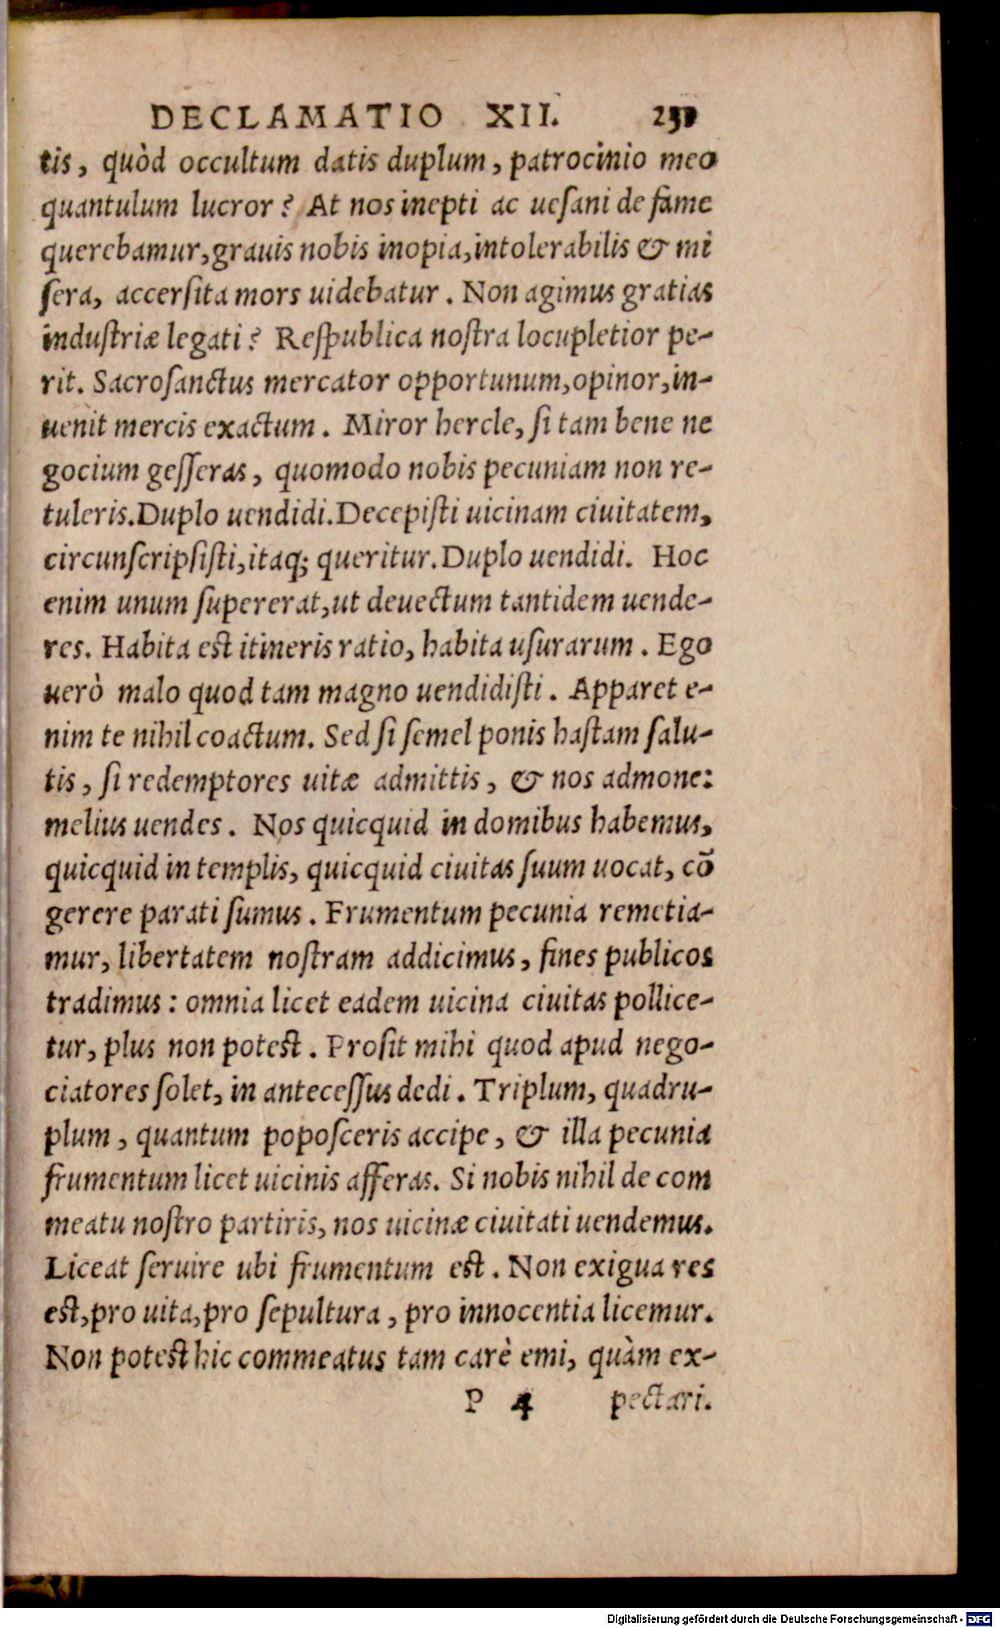 DECLAMATIO XII. 231
tis, quòd occultum datis duplum, patrocinio meo
quantulum lucror? At nos inepti ac uesani de fame
querebamur, grauis nobis inopia, intolerabilis & mi
sera, accersita mors uidebatur. Non agimus gratias
industriæ legati? Respublica nostra locupletior pe-
rit. Sacrosanctus mercator opportunum, opinor, in-
uenit mercis exactum. Miror hercle, si tam bene ne
gocium gesseras, quomodo nobis pecuniam non re-
tuleris. Duplo uendidi. Decepisti uicinam ciuitatem,
circunscripsisti, itaq; queritur. Duplo uendidi. Hoc
enim unum supererat, ut deuectum tantidem uende-
res. Habita est itineris ratio, habita usurarum. Ego
uerò malo quod tam magno uendidisti. Apparet e-
nim te nihil coactum. Sed si semel ponis hastam salu-
tis, si redemptores uitæ admittis, & nos admone:
melius uendes. Nos quicquid in domibus habemus,
quicquid in templis, quicquid ciuitas suum uocat, cō
gerere parati sumus. Frumentum pecunia remetia-
mur, libertatem nostram addicimus, fines publicos
tradimus: omnia licet eadem uicina ciuitas pollice-
tur, plus non potest. Prosit mihi quod apud nego-
ciatores solet, in antecessus dedi. Triplum, quadru-
plum, quantum poposceris accipe, & illa pecunia
frumentum licet uicinis afferas. Si nobis nihil de com
meatu nostro partiris, nos uicinæ ciuitati uendemus.
Liceat seruire ubi frumentum est. Non exigua res
est, pro uita, pro sepultura, pro innocentia licemur.
Non potest hic commeatus tam carè emi, quàm ex-
P 4 pectari.
Digitalisierung gefördert durch die Deutsche Forschungsgemeinschaft - DFG